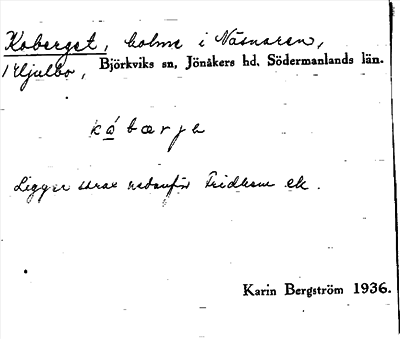 Koberget, holme i Näsnaren,
Hjulbo, Björkviks sn, Jönåkers hd. Södermanlands län.
kóbærje
Ligger strax nedanför Fridhem ek.
Karin Bergström 1936.